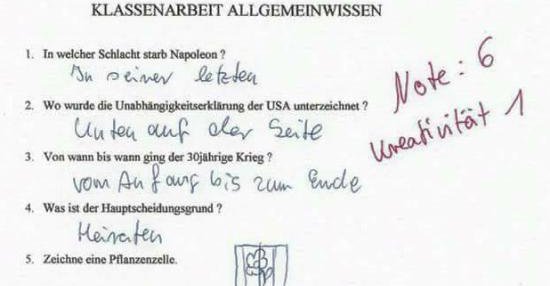 KLASSENARBEIT ALLGEMEINWISSEN
1. In welcher Schlacht starb Napoleon ?
In seiner letzten
2. Wo wurde die Unabhängigkeitserklärung der USA unterzeichnet ?
Unten auf der Seite
3. Von wann bis wann ging der 30jährige Krieg ?
vom Anfang bis zum Ende
4. Was ist der Hauptscheidungsgrund ?
Heiraten
5. Zeichne eine Pflanzenzelle.
Note : 6
Kreativität 1